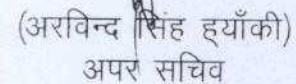 (अरविन्द सिंह ह्याँकी)
अपर सचिव